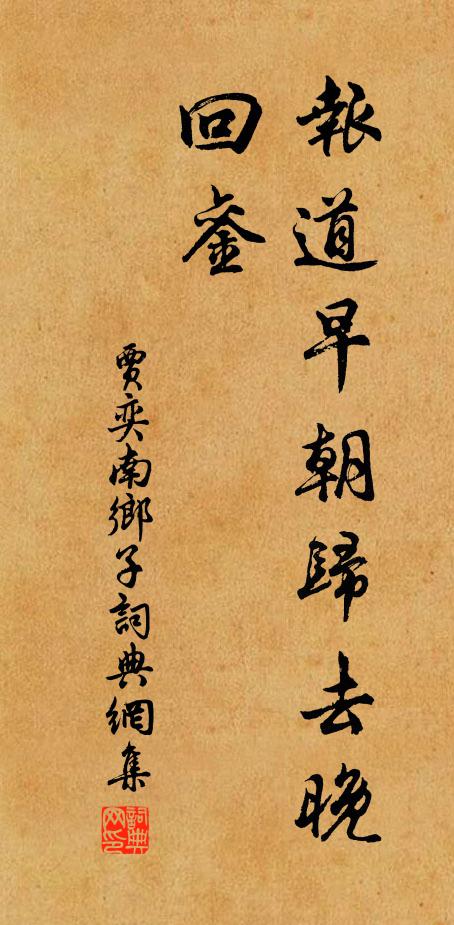 報道早朝歸去晚
回銮
賈奕南鄉子詞典網集
詞典
网印